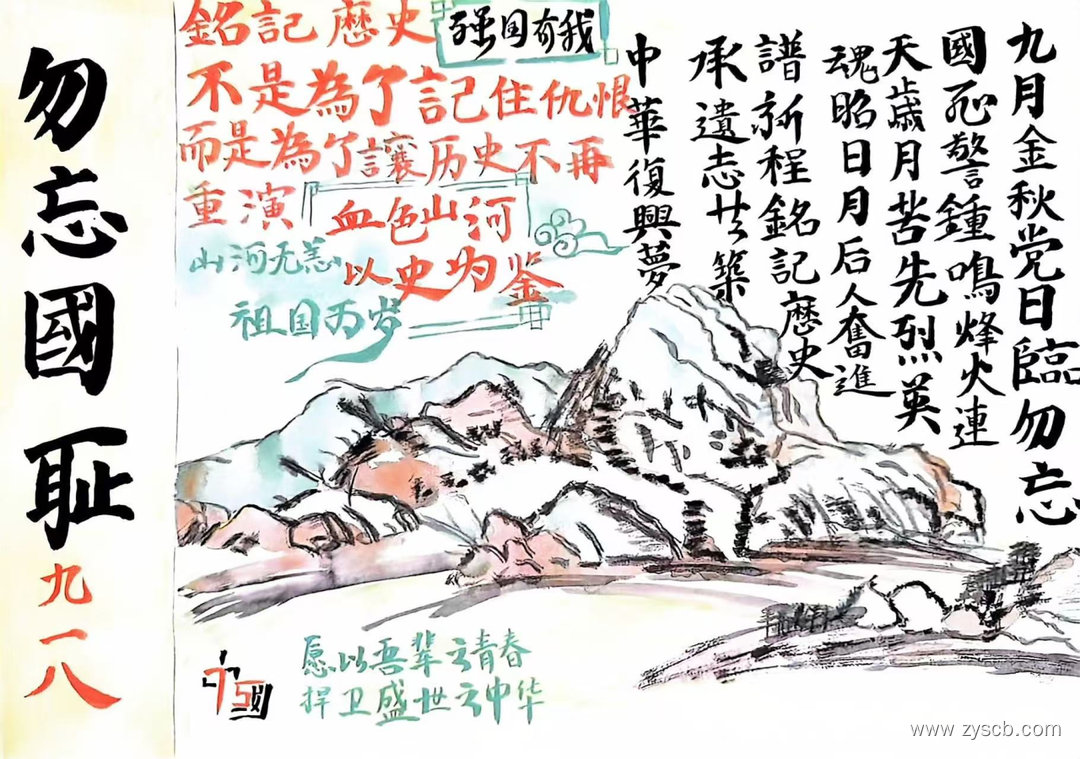 勿忘國耻
九一八
銘記歷史
强国有我
不是為了記住仇恨
而是為了讓历史不再
重演
血色山河
山河无恙
以史为鉴
祖国万岁
九月金秋党日臨勿忘
國耻警鍾鳴烽火連
天歲月苦先烈英
魂昭日月后人奮進
譜新程銘記歷史
承遺志共築
中華復興夢
愿以吾辈之青春
捍卫盛世之中华
中國
www.zyscb.com